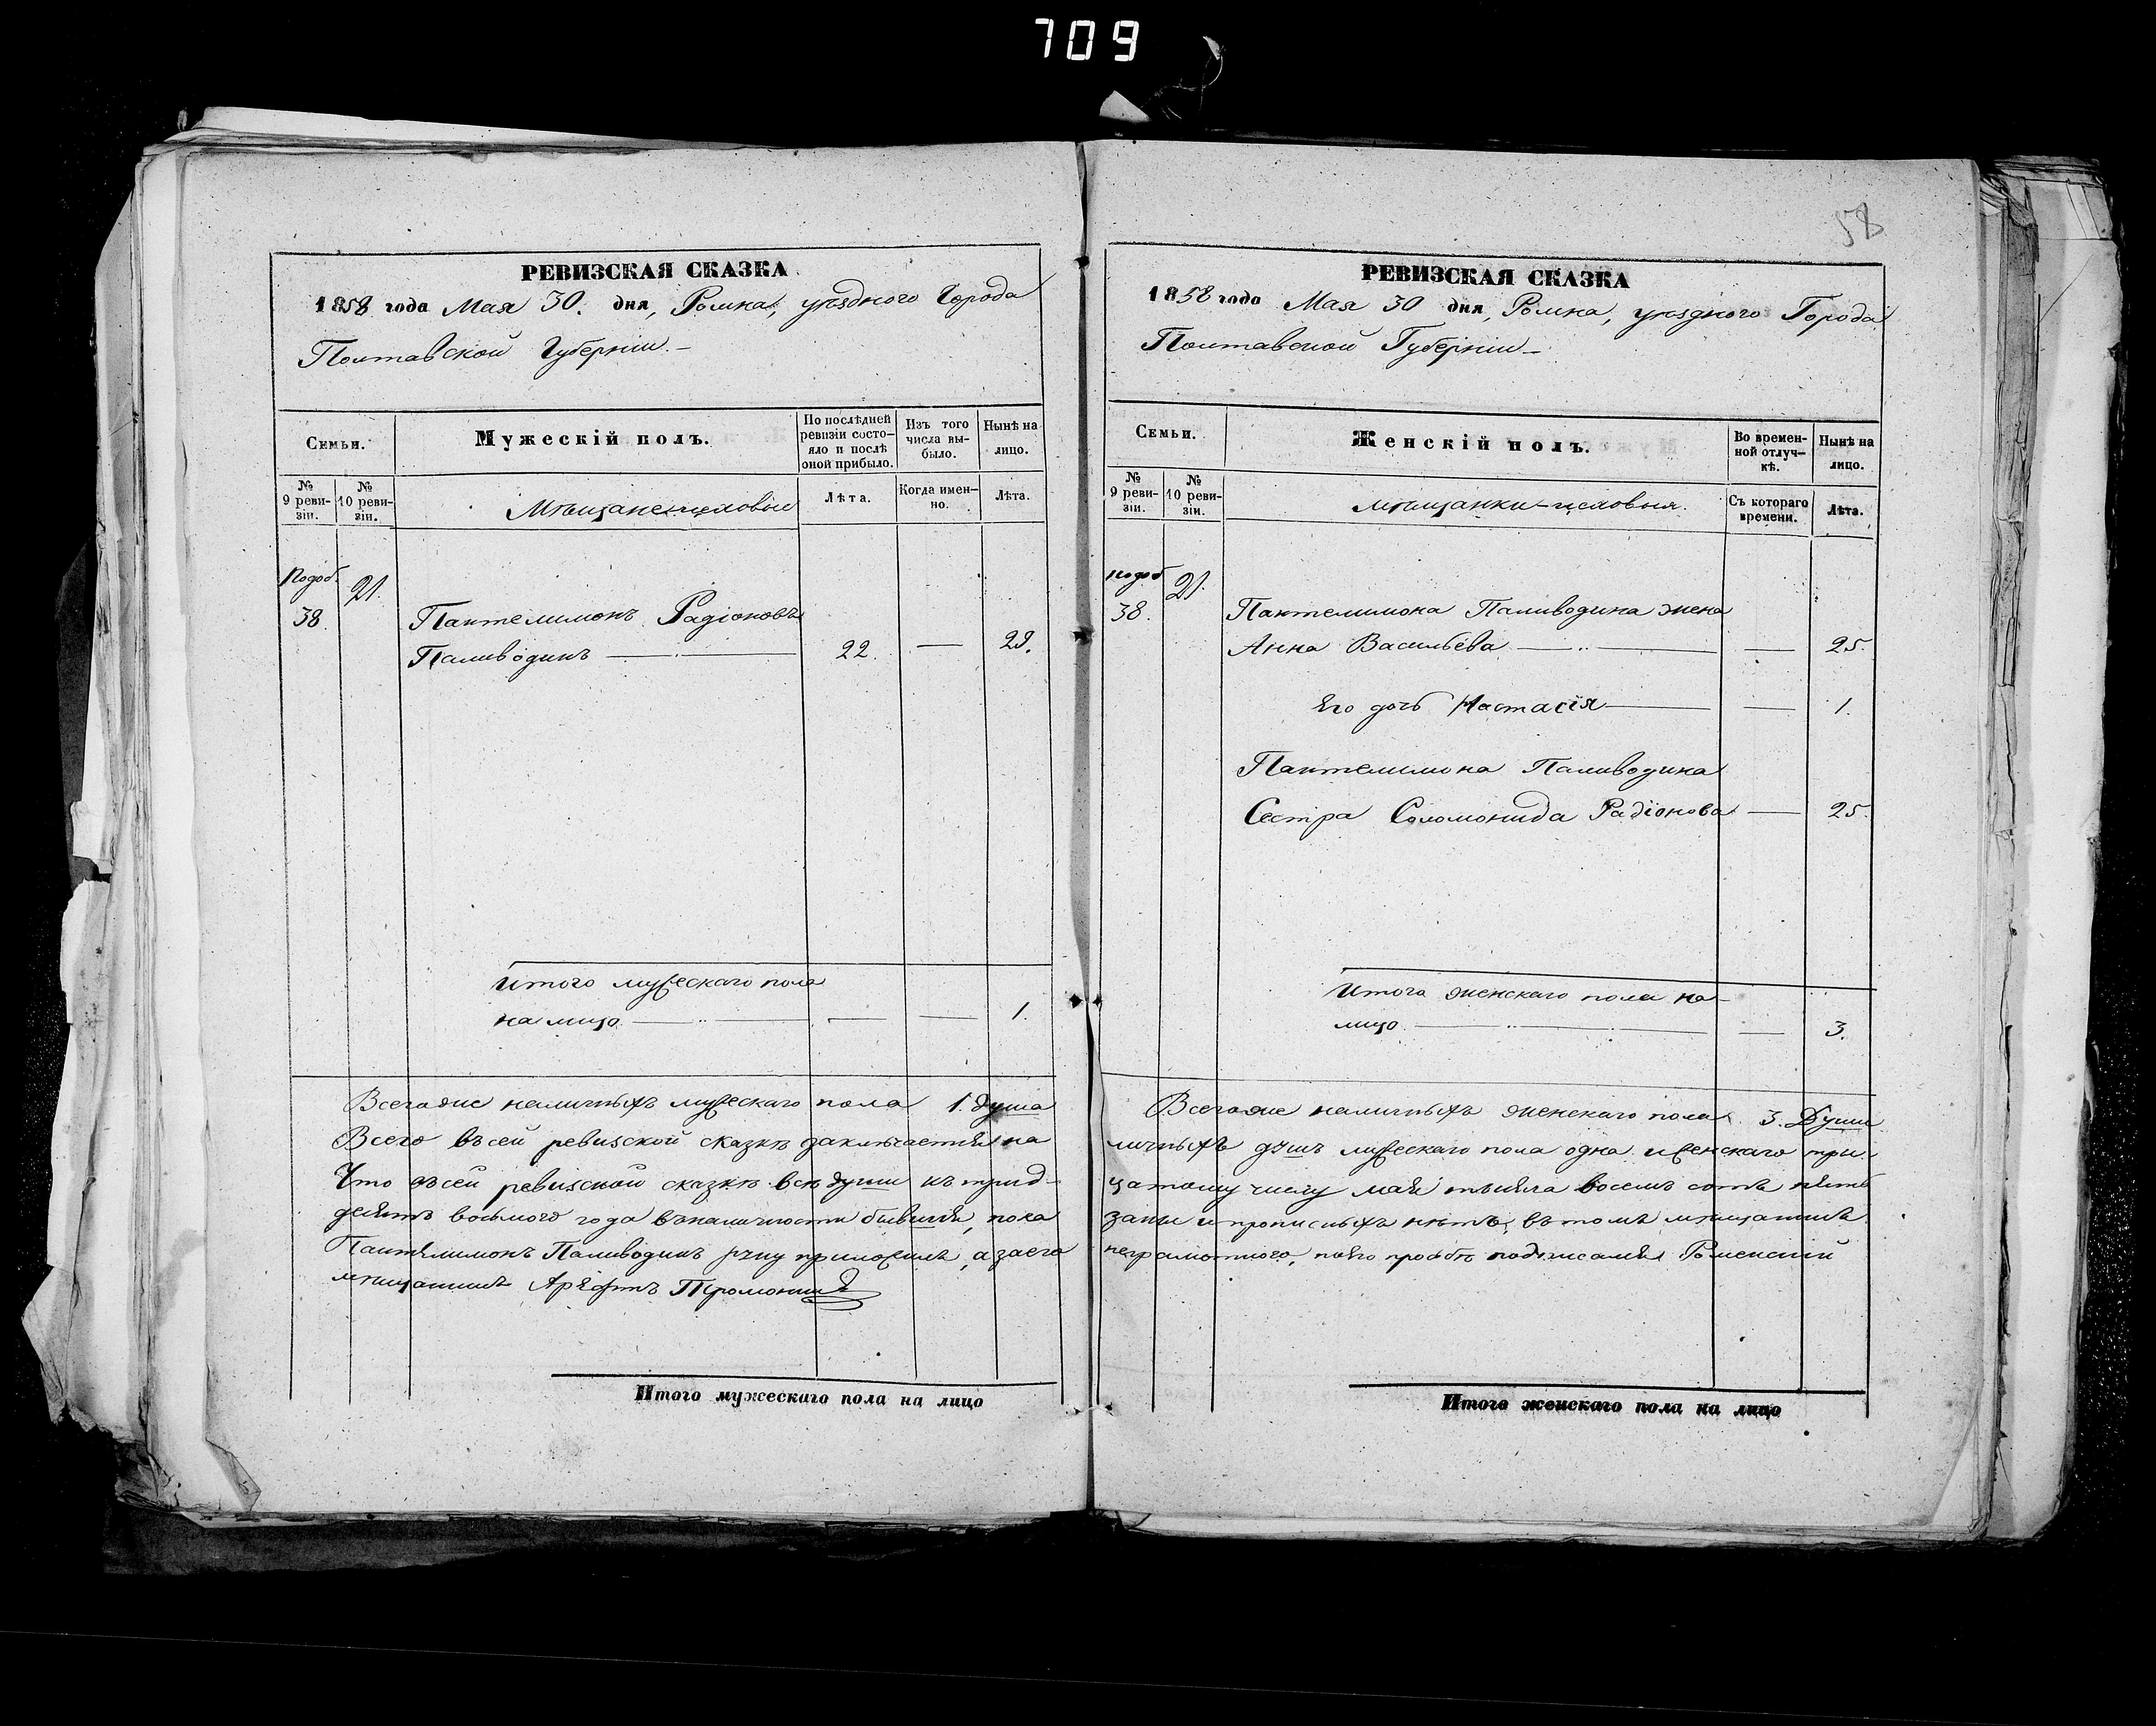 709
РЕВИЗСКАЯ СКАЗКА
1858 года Мая 30. дня, Ромна, уѣзднаго Города
Полтавской Губерніи. –
Семьи.
Мужескій полъ.
По послѣдней ревизіи состо-
яло и послѣ оной прибыло.
Изъ того числа вы-
было.
Нынѣ на лицо.
№ 9 реви-
зіи.
№ 10 реви-
зіи.
Мѣщане-цеховые
Лѣта.
Когда имен-
но.
Лѣта.
Подоб. 21.
38. Пантелимонъ Радіоновъ
Паливодинъ — 22. — 29.
Итого мужескаго пола
на лицо — — — 1.
Всегоже наличныхъ мужескаго пола 1. душа
Всего въ сей ревизской сказкѣ заключается на
Что въ сей ревизской сказкѣ всѣ души къ трид-
десятъ восьмого года въ наличности бывшія, пока
Пантелимонъ Паливодинъ руку приложилъ, а за его
мѣщанинъ
Итого мужескаго пола на лицо
58
РЕВИЗСКАЯ СКАЗКА
1858 года Мая 30 дня, Ромна, уѣзднаго Города
Полтавской Губерніи –
Семьи.
Женскій полъ.
Во времен-
ной отлуч-
кѣ.
Нынѣ на лицо.
№ 9 реви-
зіи.
№ 10 реви-
зіи.
мѣщанки-цеховыя.
Съ котораго времени.
Лѣта.
подоб 21.
38. Пантелимона Паливодина жена
Анна Васильева — — 25.
Его дочь Настасія — — 1.
Пантелимона Паливодина
Сестра Соломонида Радіонова — 25.
Итого женскаго пола на-
лицо — — 3.
Всегоже наличныхъ женскаго пола 3. Души
личныхъ душъ мужескаго пола одна и женскаго три.
цатому числу мая тысяча восемь сотъ пять
заны и прописныхъ нѣтъ, въ томъ мѣщанинъ
неграмотного, по его прозбѣ подписался Роменскій
Итого женскаго пола на лицо